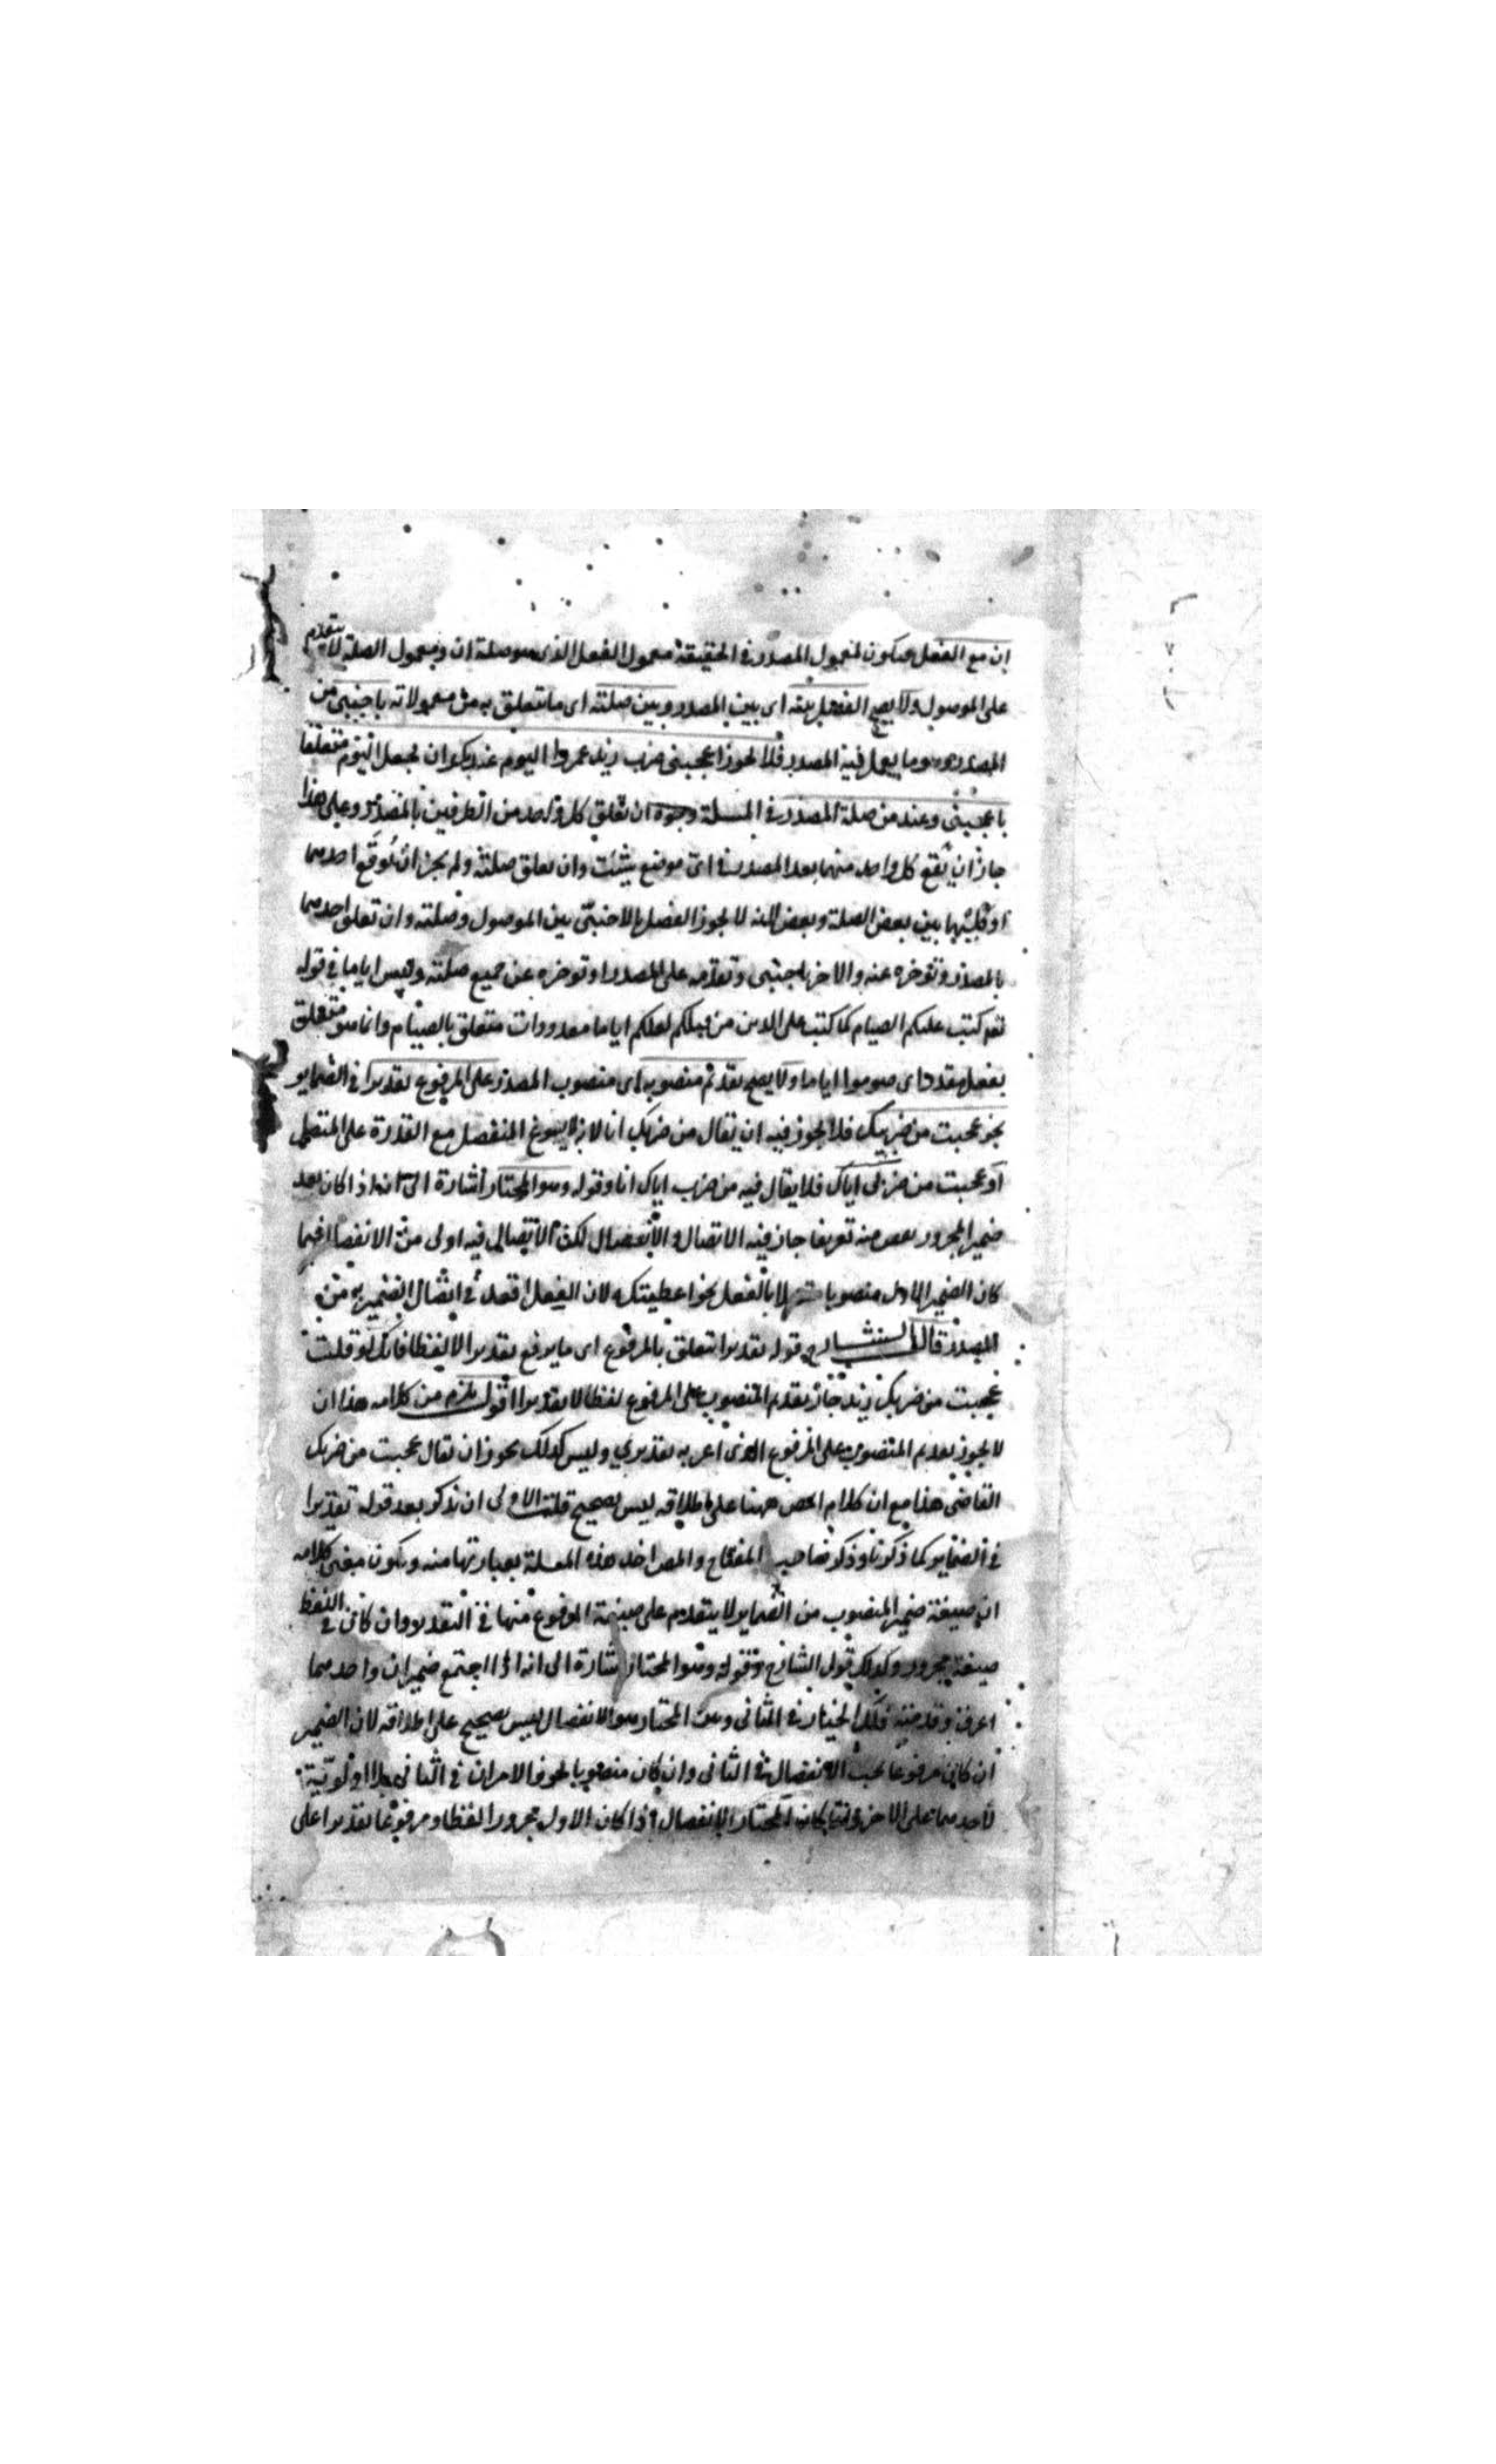 ان مع الفعل فيكون معمول المصدر في الحقيقة معمول الفعل الذي هو صلة ان ومعمول الصلة لا يتقدم
على الموصول ولا يصح الفصل بينه اى بين المصدر وبين صلته اى ما يتعلق به من معمولاته باجنبى من
المصدر وهو ما يعمل فيه المصدر فلا يجوز اعجبنى ضرب زيد عمروا اليوم عند بكر ان يجعل اليوم متعلقا
باعجبنى وعند من صلة المصدر في المسئلة وجوه ان تعلق كل واحد من الظرفين بالمصدر وعلى هذا
جاز ان يقع كل واحد منهما بعد المصدر في اى موضع شئت وان تعلق صلته ولم يجز ان توقع احدهما
او كليهما بين بعض الصلة وبعض لانه لا يجوز الفصل بالاجنبى بين الموصول وصلته وان تعلق احدهما
بالمصدر وتوخره عنه والاخر باجنبى وتقدمه على المصدر او توخره عن جميع صلته وليس اياما في قوله
تعـ كتب عليكم الصيام كما كتب على الذين من قبلكم لعلكم اياما معدودات متعلق بالصيام وانما هو متعلق
بفعل مقدر اى صوموا اياما ولا يصح تقدم منصوبه اى منصوب المصدر على المرفوع تقديرا في الضماير
نحو عجبت من ضربيك فلا يجوز فيه ان يقال من ضربك انا لانه لا يسوغ المنفصل مع القدرة على المتصل
او عجبت من ضربى اياك فلا يقال فيه من ضرب اياك انا وقوله وهو المختار اشارة الى انه اذا كان بعد
ضمير المجرور نقص منه تعريفا جاز فيه الاتصال والانفصال لكن الاتصال فيه اولى من الانفصال فيما
كان الضمير الاول منصوبا بالفعل نحو اعطيتك لان الفعل اقعد في اتصال الضمير به من
المصدر قال الشارح قوله تقديرا يتعلق بالمرفوع اى ما يرفع تقديرا لا لفظا فانك لو قلت
عجبت من ضربك زيد جاز تقدم المنصوب على المرفوع لفظا لا تقديرا اقول يلزم من كلامه هذا ان
لا يجوز تقديم المنصوب على المرفوع الذى اعرابه تقديرى وليس كذلك يجوز ان يقال عجبت من ضربك
القاضى هذا مع ان كلام المص ههنا على اطلاقه ليس بصحيح قلت الاولى ان نذكر بعد قوله تقديرا
في الضماير كما ذكرنا وذكر صاحب المفتاح والمص اخذ هذه المسئلة بعبارتها منه ويكون معنى كلامه
ان صيغة ضمير المنصوب من الضماير لا يتقدم على صيغة المرفوع منها في التقدير وان كان في اللفظ
صيغة مجرور وكذلك قول الشارح وقوله وهو المختار اشارة الى انه اذا اجتمع ضميران واحدهما
اعرف وقدمته فلك الخيار في الثانى المختار هو الانفصال ليس بصحيح على اطلاقه لان الضمير
ان كان مرفوعا يجب الانفصال في الثانى وان كان منصوبا يجوز الامران في الثانى بلا اولوية
لاحدهما على الاخر وانما كان المختار الانفصال اذا كان الاول مجرورا لفظا ومرفوعا تقديرا على